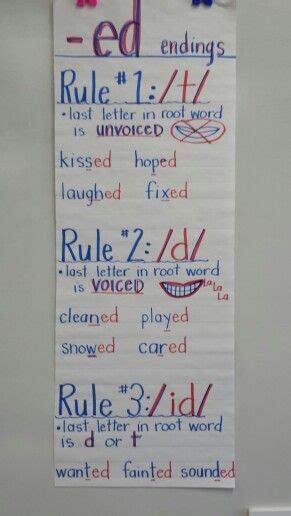 -ed endings
Rule #1: /t/
• last letter in root word
is unvoiced
kissed hoped
laughed fixed
Rule #2: /d/
• last letter in root word
is voiced
La
La
La
cleaned played
snowed cared
Rule #3: /id/
• last letter in root word
is d or t
wanted fainted sounded